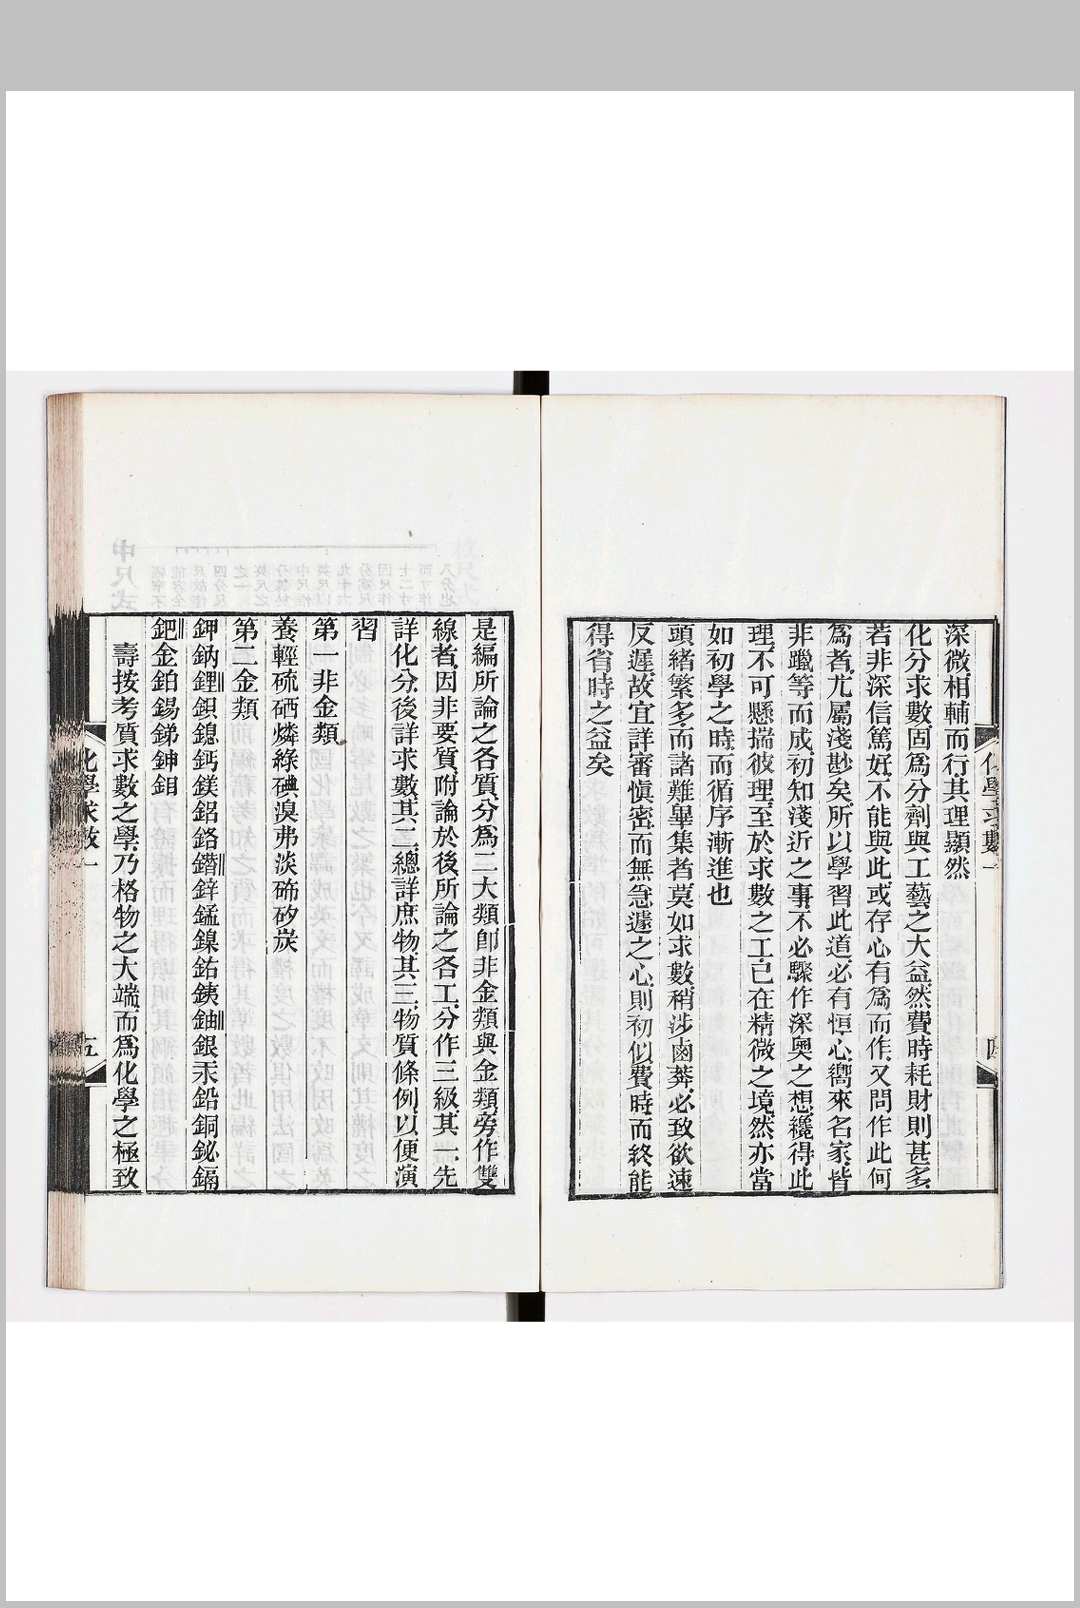 深微相輔而行其理顯然
化分求數固爲分劑與工藝之大益然費時耗財則甚多
若非深信篤好不能與此或存心有爲而作又問作此何
爲者尤屬淺尠矣所以學習此道必有恒心嚮來名家皆
非躐等而成初知淺近之事不必驟作深奧之想纔得此
理不可懸揣彼理至於求數之工已在精微之境然亦當
如初學之時而循序漸進也
頭緒繁多而諸難畢集者莫如求數稍涉鹵莽必致欲速
反遲故宜詳審愼密而無急遽之心則初似費時而終能
得省時之益矣
化學求數一
四
是編所論之各質分爲二大類卽非金類與金類旁作雙
線者因非要質附論於後所論之各工分作三級其一先
詳化分後詳求數其二總詳庶物其三物質條例以便演
習
第一非金類
養輕硫硒燐綠碘溴弗淡硴矽炭
第二金類
鉀鈉鋰鋇鎴鈣鎂鋁鉻鐟鋅錳鎳鈷鐵鈾銀汞鉛銅鉍鎘
鈀金鉑錫銻鉮鉬
壽按考質求數之學乃格物之大端而爲化學之極致
化學求數一
五